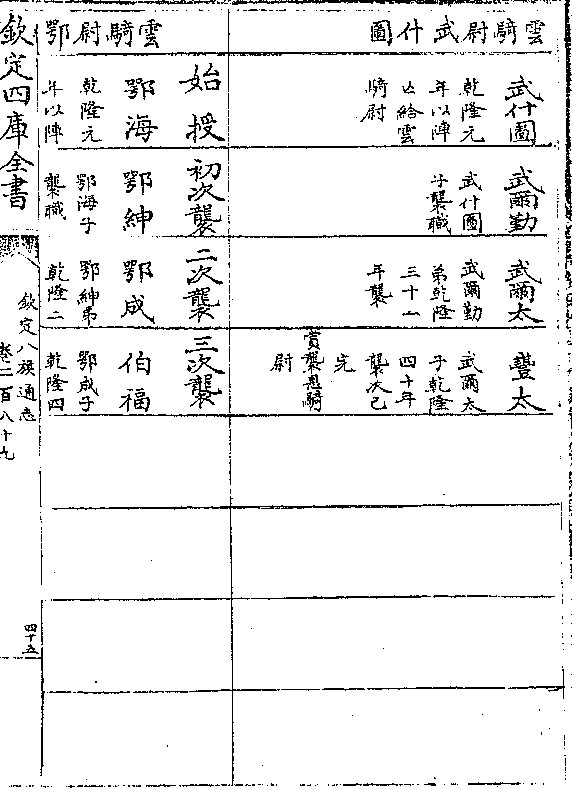 雲騎尉武什圖
武什圖
乾隆元
年以陣
亡給雲
騎尉
武爾勤
武什圖
子襲職
武爾太
武爾勤
弟乾隆
三十一
年襲
豐太
武爾太
子乾隆
四十年
襲次已
完
賞襲恩騎
尉
雲騎尉鄂
始授
鄂海
乾隆元
年以陣
初次襲
鄂紳
鄂海子
襲職
二次襲
鄂成
鄂紳弟
乾隆二
三次襲
伯福
鄂成子
乾隆四
欽定四庫全書
欽定八旗通志
卷二百八十九
四十五